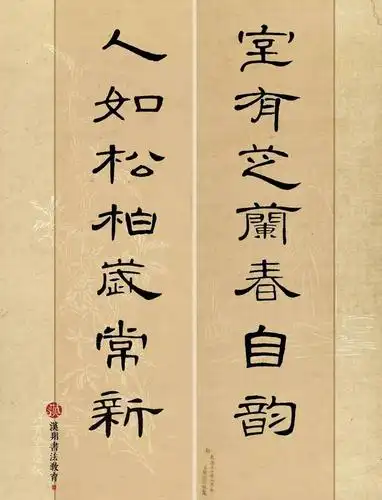 室有芝蘭春自韵
人如松柏歲常新
漢翔書法教育